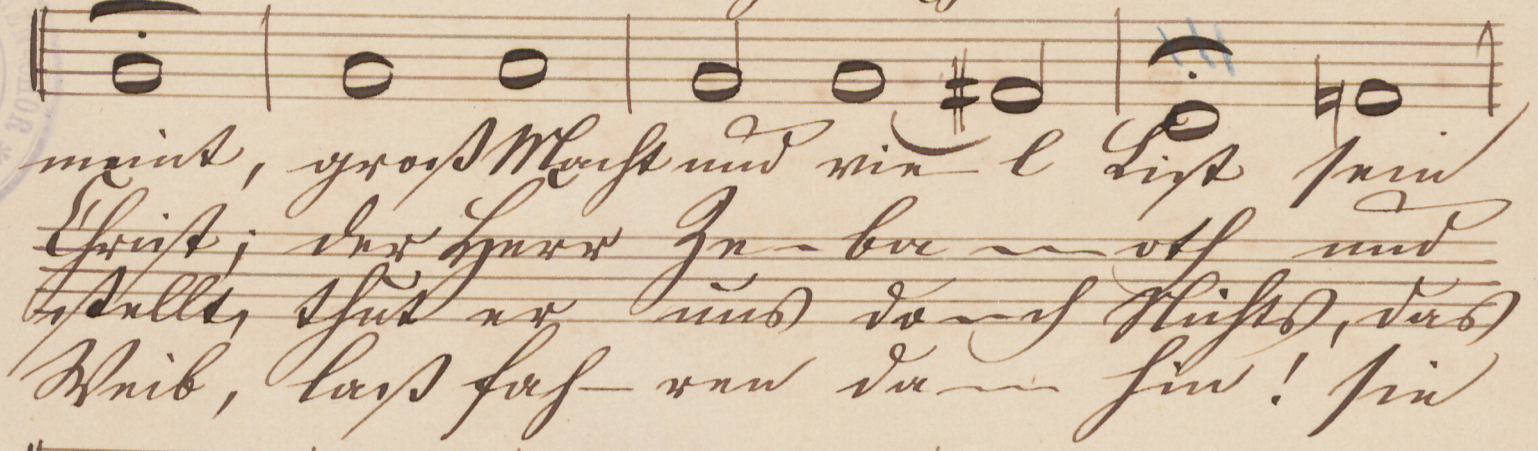 meint, groß Macht und vie - l List sein
Christ; der Herr Ze - ba - oth und
stellt, thut er uns do - ch Nichts, das
Weib, laß fah - ren da - hin! sie